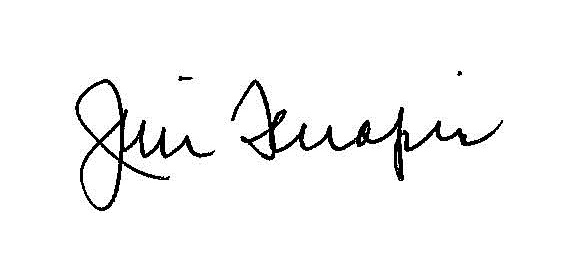 Jim Terrapin